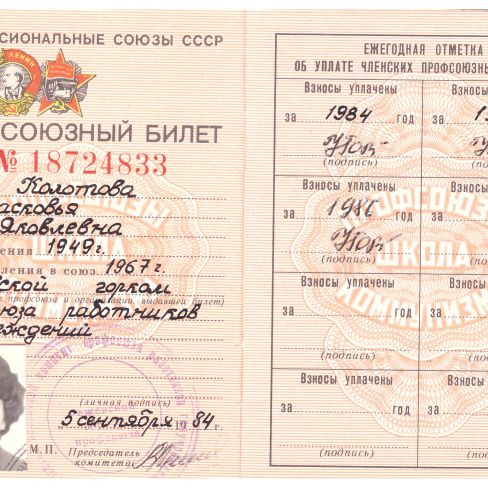 СИОНАЛЬНЫЕ СОЮЗЫ СССР
ЛЕНИН
СОЮЗНЫЙ БИЛЕТ
№ 18724833
Колотова
асковья
Яковлевна
ения 1949г.
ления в союз 1967г.
ской горком
профсоюза и организации, выдавшей билет)
юза работников
еждений
(личная подпись)
5 сентября 1984 г.
М.П. Председатель
комитета
ЕЖЕГОДНАЯ ОТМЕТКА
ОБ УПЛАТЕ ЧЛЕНСКИХ ПРОФСОЮЗН
Взносы уплачены Взносы упл
за 1984 год за 1
(подпись) (подпи
Взносы уплачены Взносы упл
за 1986 год за
(подпись) (подпи
Взносы уплачены Взносы упл
за год за
(подпись) (подпи
Взносы уплачены Взносы упл
за год за
(подпись) (подпи
ПРОФСОЮЗЫ
ШКОЛА
КОММУНИЗМА